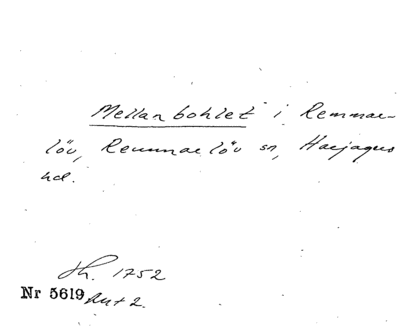 Mellanbohlet i Remmae-
löv, Remmaelöv sn, Haejagers
hd.
Sk. 1752
Nr 5619 Akt 2.